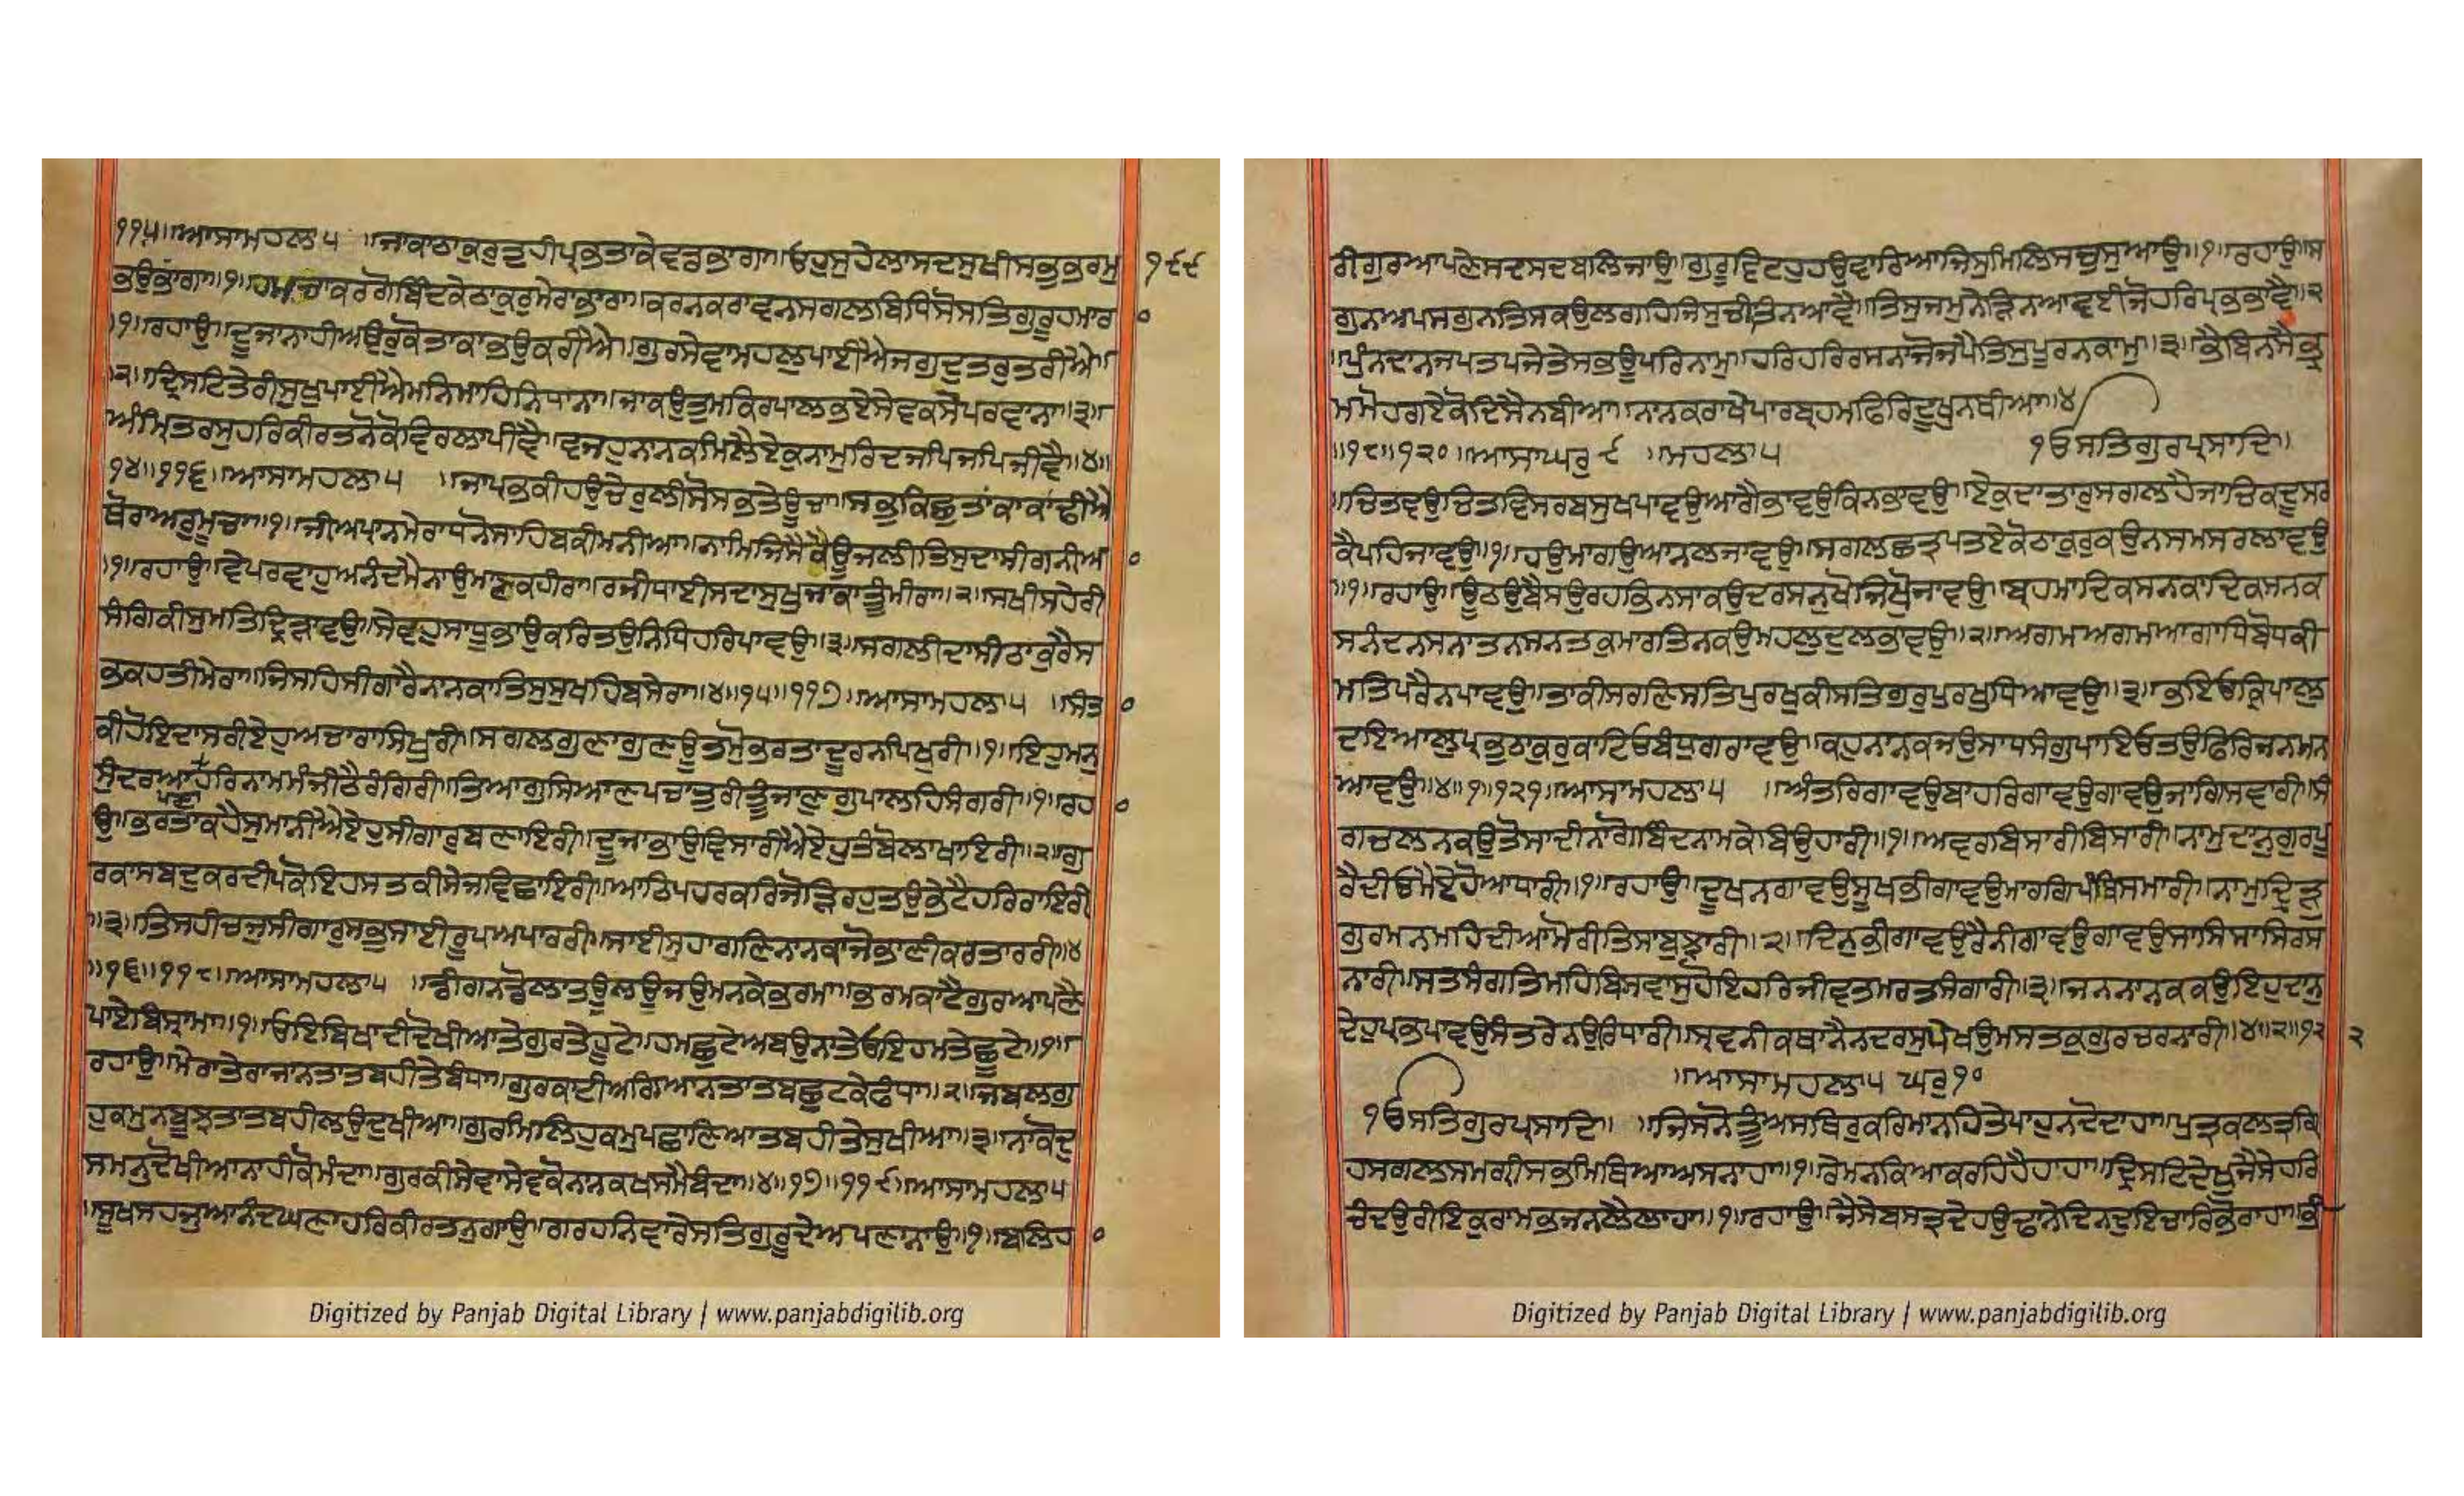 ੧੧੫॥ਆਸਾਮਹਲਾ੫ ॥ਜਾਕਾਠਾਕੁਰੁਤੁਹੀਪ੍ਰਭਤਾਕੇਵਡਭਾਗਾ॥ਓਹੁਸੁਹੇਲਾਸਦਸੁਖੀਸਭੁਭ੍ਰਮੁ
ਭਉਭਾਗਾ॥੧॥ਹਮਚਾਕਰਗੋਬਿੰਦਕੇਠਾਕੁਰੁਮੇਰਾਭਾਰਾ॥ਕਰਨਕਰਾਵਨਸਗਲਬਿਧਿਸੋਸਤਿਗੁਰੂਹਮਾਰ
॥੧॥ਰਹਾਉ॥ਦੂਜਾਨਾਹੀਅਉਰੁਕੋਤਾਕਾਭਉਕਰੀਐ॥ਗੁਰਸੇਵਾਮਹਲੁਪਾਈਐਜਗੁਦੁਤਰੁਤਰੀਐ॥
॥੨॥ਦ੍ਰਿਸਟਿਤੇਰੀਸੁਖੁਪਾਈਐਮਨਿਮਾਹਿਨਿਧਾਨਾ॥ਜਾਕਉਤੁਮਕਿਰਪਾਲਭਏਸੇਵਕਸੇਪਰਵਾਨਾ॥੩॥
ਅੰਮ੍ਰਿਤਰਸੁਹਰਿਕੀਰਤਨੋਕੋਵਿਰਲਾਪੀਵੈ॥ਵਜਹੁਨਾਨਕਮਿਲੈਏਕੁਨਾਮੁਰਿਦਜਪਿਜਪਿਜੀਵੈ॥੪॥
੧੪॥੧੧੬॥ਆਸਾਮਹਲਾ੫ ॥ਜਾਪ੍ਰਭਕੀਹਉਚੇਰੁਲੀਸੋਸਭਤੇਊਚਾ॥ਸਭੁਕਿਛੁਤਾਕਾਕਾਂਢੀਐ
ਥੋਰਾਅਰੁਮੂਚਾ॥੧॥ਜੀਅਪ੍ਰਾਨਮੇਰਾਧਨੋਸਾਹਿਬਕੀਮਨੀਆ॥ਨਾਮਿਜਿਸੈਕੈਊਜਲੀਤਿਸੁਦਾਸੀਗਨੀਆ
॥੧॥ਰਹਾਉ॥ਵੇਪਰਵਾਹੁਅਨੰਦਮੈਨਾਉਮਾਣਕਹੀਰਾ॥ਰਜੀਧਾਈਸਦਾਸੁਖੁਜਾਕਾਤੂੰਮੀਰਾ॥੨॥ਸਖੀਸਹੇਰੀ
ਸੰਗਿਕੀਸੁਮਤਿਦ੍ਰਿੜਾਵਉ॥ਸੇਵਹੁਸਾਧੂਭਾਉਕਰਿਤਉਨਿਧਿਹਰਿਪਾਵਉ॥੩॥ਸਗਲੀਦਾਸੀਠਾਕੁਰੈਸ
ਭਕਹਤੀਮੇਰਾ॥ਜਿਸਹਿਸੀਗਾਰੈਨਾਨਕਾਤਿਸੁਸੁਖਹਿਬਸੇਰਾ॥੪॥੧੫॥੧੧੭॥ਆਸਾਮਹਲਾ੫ ॥ਸੰਤ
ਕੀਹੋਇਦਾਸਰੀਏਹੁਅਚਾਰਾਸਿਖੁਰੀ॥ਸਗਲਗੁਣਾਗੁਣਊਤਮੋਭਰਤਾਦੂਰਨਪਿਖੁਰੀ॥੧॥ਇਹੁਮਨੁ
ਸੁੰਦਰਆਪਣਾਹਰਿਨਾਮਮੰਜੀਠੈਰੰਗਿਰੀ॥ਤਿਆਗੁਸਿਆਣਪਚਾਤੁਰੀਤੂੰਜਾਣੁਗੁਪਾਲਹਿਸੰਗਰੀ॥੧॥ਰਹ
ਉ॥ਭਰਤਾਕਹੈਸੁਮਾਨੀਐਏਹੁਸੀਗਾਰੁਬਣਾਇਰੀ॥ਦੂਜਾਭਾਉਵਿਸਾਰੀਐਏਹੁਤੰਬੋਲਾਖਾਇਰੀ॥੨॥ਗੁ
ਰਕਾਸਬਦੁਕਰਦੀਪਕੋਇਹਸਤਕੀਸੇਜਵਿਛਾਇਰੀ॥ਆਠਪਹਰਕਰਿਜੋੜਿਰਹੁਤਉਭੇਟੈਹਰਿਰਾਇਰੀ
॥੩॥ਤਿਸਹੀਚਜੁਸੀਗਾਰੁਸਭੁਸਾਈਰੂਪਅਪਾਰਰੀ॥ਸਾਈਸੁਹਾਗਣਿਨਾਨਕਾਜੋਭਾਣੀਕਰਤਾਰਰੀ॥੪
॥੧੬॥੧੧੮॥ਆਸਾਮਹਲਾ੫ ॥ਡੀਗਨਡੋਲਾਤਊਲਉਜਉਮਨਕੇਭਰਮਾ॥ਭਰਮਕਾਟੈਗੁਰਆਪਣੈ
ਪਾਏਬਿਸ੍ਰਾਮਾ॥੧॥ਓਇਬਿਖਾਦੀਦੋਖੀਆਤੇਗੁਰਤੇਹੂਟੇ॥ਹਮਛੂਟੇਅਬਉਨਾਤੇਓਇਹਮਤੇਛੂਟੇ॥੧॥
ਰਹਾਉ॥ਮੇਰਾਤੇਰਾਜਾਨਤਾਤਬਹੀਤੇਬੰਧਾ॥ਗੁਰਕਾਟੀਅਗਿਆਨਤਾਤਬਛੁਟਕੇਫੰਧਾ॥੨॥ਜਬਲਗੁ
ਹੁਕਮੁਨਬੂਝਤਾਤਬਹੀਲਉਦੁਖੀਆ॥ਗੁਰਮਿਲਿਹੁਕਮੁਪਛਾਣਿਆਤਬਹੀਤੇਸੁਖੀਆ॥੩॥ਨਾਕੋਦੁ
ਸਮਨੁਦੋਖੀਆਨਾਹੀਕੋਮੰਦਾ॥ਗੁਰਕੀਸੇਵਾਸੇਵਕੋਨਾਨਕਖਸਮੈਬੰਦਾ॥੪॥੧੭॥੧੧੯॥ਆਸਾਮਹਲਾ੫
॥ਸੂਖਸਹਜੁਆਨੰਦਘਣਾਹਰਿਕੀਰਤਨੁਗਾਉ॥ਗਰਹਨਿਵਾਰੇਸਤਿਗੁਰੂਦੇਅਪਣਾਨਾਉ॥੧॥ਬਲਿਹ
੧੯੯
Digitized by Panjab Digital Library | www.panjabdigilib.org
ਰੀਗੁਰਆਪਣੇਸਦਸਦਬਲਿਜਾਉ॥ਗੁਰੂਵਿਟਹੁਹਉਵਾਰਿਆਜਿਸੁਮਿਲਿਸਚੁਸੁਆਉ॥੧॥ਰਹਾਉ॥ਸ
ਗੁਨਅਪਸਗੁਨਤਿਸਕਉਲਗਹਿਜਿਸੁਚੀਤਿਨਆਵੈ॥ਤਿਸੁਜਮੁਨੇੜਿਨਆਵਈਜੋਹਰਿਪ੍ਰਭਭਾਵੈ॥੨
॥ਪੁੰਨਦਾਨਜਪਤਪਜੇਤੇਸਭਊਪਰਿਨਾਮੁ॥ਹਰਿਹਰਿਰਸਨਾਜੋਜਪੈਤਿਸੁਪੂਰਨਕਾਮੁ॥੩॥ਭੈਬਿਨਸੈਭ੍ਰ
ਮਮੋਹਗਏਕੋਦਿਸੈਨਬੀਆ॥ਨਾਨਕਰਾਖੇਪਾਰਬ੍ਰਹਮਫਿਰਿਦੂਖੁਨਥੀਆ॥੪
॥੧੮॥੧੨੦॥ਆਸਾਘਰੁ੯ ॥ਮਹਲਾ੫ ੴਸਤਿਗੁਰਪ੍ਰਸਾਦਿ॥
॥ਚਿਤਵਉਚਿਤਵਿਸਰਬਸੁਖਪਾਵਉਆਗੈਭਾਵਉਕਿਨਭਾਵਉ॥ਏਕੁਦਾਤਾਰੁਸਗਲਹੈਜਾਚਿਕਦੂਸਰ
ਕੈਪਹਿਜਾਵਉ॥੧॥ਹਉਮਾਗਉਆਨਲਜਾਵਉ॥ਸਗਲਛਤ੍ਰਪਤਏਕੋਠਾਕੁਰੁਕਉਨਸਮਸਰਲਾਵਉ
॥੧॥ਰਹਾਉ॥ਊਠਉਬੈਸਉਰਹਭਿਨਸਾਕਉਦਰਸਨੁਖੋਜਿਖੋਜਾਵਉ॥ਬ੍ਰਹਮਾਦਿਕਸਨਕਾਦਿਕਸਨਕ
ਸਨੰਦਨਸਨਾਤਨਸਨਤਕੁਮਾਰਤਿਨਕਉਮਹਲੁਦੁਲਭਾਵਉ॥੨॥ਅਗਮਅਗਮਆਗਾਧਿਬੋਧਕੀ
ਮਤਿਪਰੈਨਪਾਵਉ॥ਤਾਕੀਸਰਣਿਸਤਿਪੁਰਖਕੀਸਤਿਗੁਰੁਪੁਰਖੁਧਿਆਵਉ॥੩॥ਭਇਓਕ੍ਰਿਪਾਲ
ਦਇਆਲੁਪ੍ਰਭੁਠਾਕੁਰੁਕਾਟਿਓਬੰਧੁਗਰਾਵਉ॥ਕਹੁਨਾਨਕਜਉਸਾਧਸੰਗੁਪਾਇਓਤਉਫਿਰਿਜਨਮਨ
ਆਵਉ॥੪॥੧॥੧੨੧॥ਆਸਾਮਹਲਾ੫ ॥ਅੰਤਰਿਗਾਵਉਬਾਹਰਿਗਾਵਉਗਾਵਉਜਾਗਿਸਵਾਰੀ॥ਸੰ
ਗਚਲਨਕਉਤੋਸਾਦੀਨਾਗੋਬਿੰਦਨਾਮਕੇਬਿਉਹਾਰੀ॥੧॥ਅਵਰਬਿਸਾਰੀਬਿਸਾਰੀ॥ਨਾਮੁਦਾਨੁਗੁਰਪੂ
ਰੈਦੀਓਮੈਏਹੋਆਧਾਰੀ॥੧॥ਰਹਾਉ॥ਦੂਖਨਗਾਵਉਸੂਖਭੀਗਾਵਉਮਾਰਗਿਪੰਥਿਸਮਾਰੀ॥ਨਾਮੁਦ੍ਰਿੜ
ਗੁਰਮਨਮਹਿਦੀਆਮੋਰੀਤਿਸਾਬੁਝਾਰੀ॥੨॥ਦਿਨੁਭੀਗਾਵਉਰੈਨੀਗਾਵਉਗਾਵਉਸਾਸਿਸਾਸਿਰਸ
ਨਾਰੀ॥ਸਤਸੰਗਤਿਮਹਿਬਿਸਵਾਸੁਹੋਇਹਰਿਜੀਵਤਮਰਤਸੰਗਾਰੀ॥੩॥ਜਨਨਾਨਕਕਉਇਹੁਦਾਨੁ
ਦੇਹੁਪ੍ਰਭਪਾਵਉਸੰਤਰੇਨਉਰਿਧਾਰੀ॥ਸ੍ਰਵਨੀਕਥਾਨੈਨਦਰਸੁਪੇਖਉਮਸਤਕੁਗੁਰਚਰਨਾਰੀ॥੪॥੨॥੧੨ ੨
॥ਆਸਾਮਹਲਾ੫ ਘਰੁ੧੦
ੴਸਤਿਗੁਰਪ੍ਰਸਾਦਿ॥ ॥ਜਿਸਨੋਤੂੰਅਸਥਿਰੁਕਰਿਮਾਨਹਿਤੇਪਾਹੁਨਦੋਦਾਹਾ॥ਪੁਤ੍ਰਕਲਤ੍ਰਗ੍ਰਿ
ਹਸਗਲਸਮਗ੍ਰੀਸਭਮਿਥਿਆਅਸਨਾਹਾ॥੧॥ਰੇਮਨਕਿਆਕਰਹਿਹੈਹਾਹਾ॥ਦ੍ਰਿਸਟਿਦੇਖੁਜੈਸੇਹਰਿ
ਚੰਦਉਰੀਇਕੁਰਾਮਭਜਨਲੈਲਾਹਾ॥੧॥ਰਹਾਉ॥ਜੈਸੇਬਸਤ੍ਰਦੇਹਉਢਾਨੇਦਿਨਦੁਇਚਾਰਿਭੋਰਾਹਾ॥ਭੀ
Digitized by Panjab Digital Library | www.panjabdigilib.org